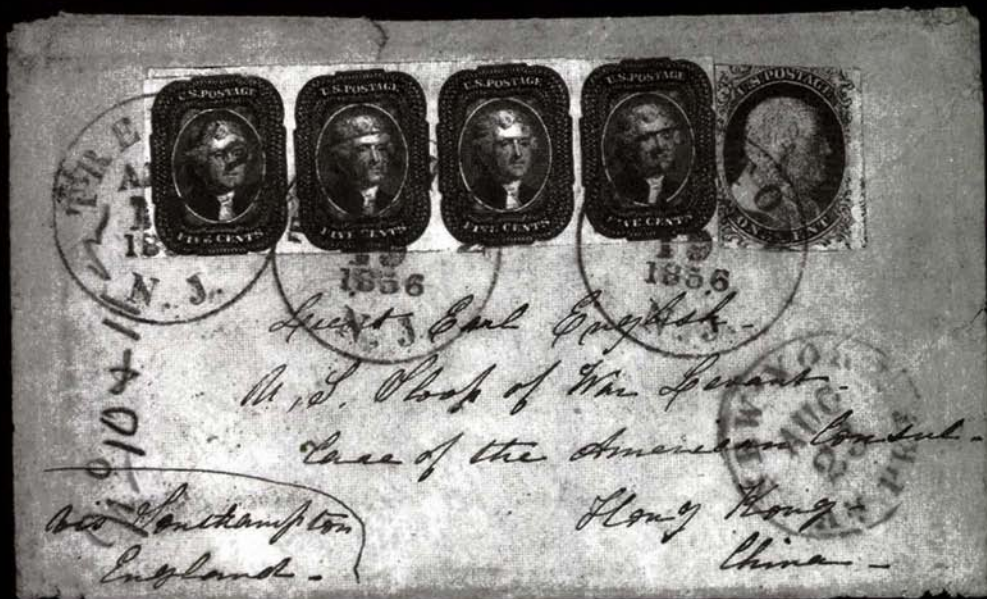 U.S. POSTAGE
FIVE CENTS
U.S. POSTAGE
FIVE CENTS
U.S. POSTAGE
FIVE CENTS
U.S. POSTAGE
FIVE CENTS
U.S. POSTAGE
ONE CENT
TRE
N.J.
19
1856
N.J.
19
1856
N.J.
NEW YORK
AUG
PKT
Lieut Earl English.
U.S. Sloop of War Levant.
Care of the American Consul.
Hong Kong
China.
via Southampton
England.